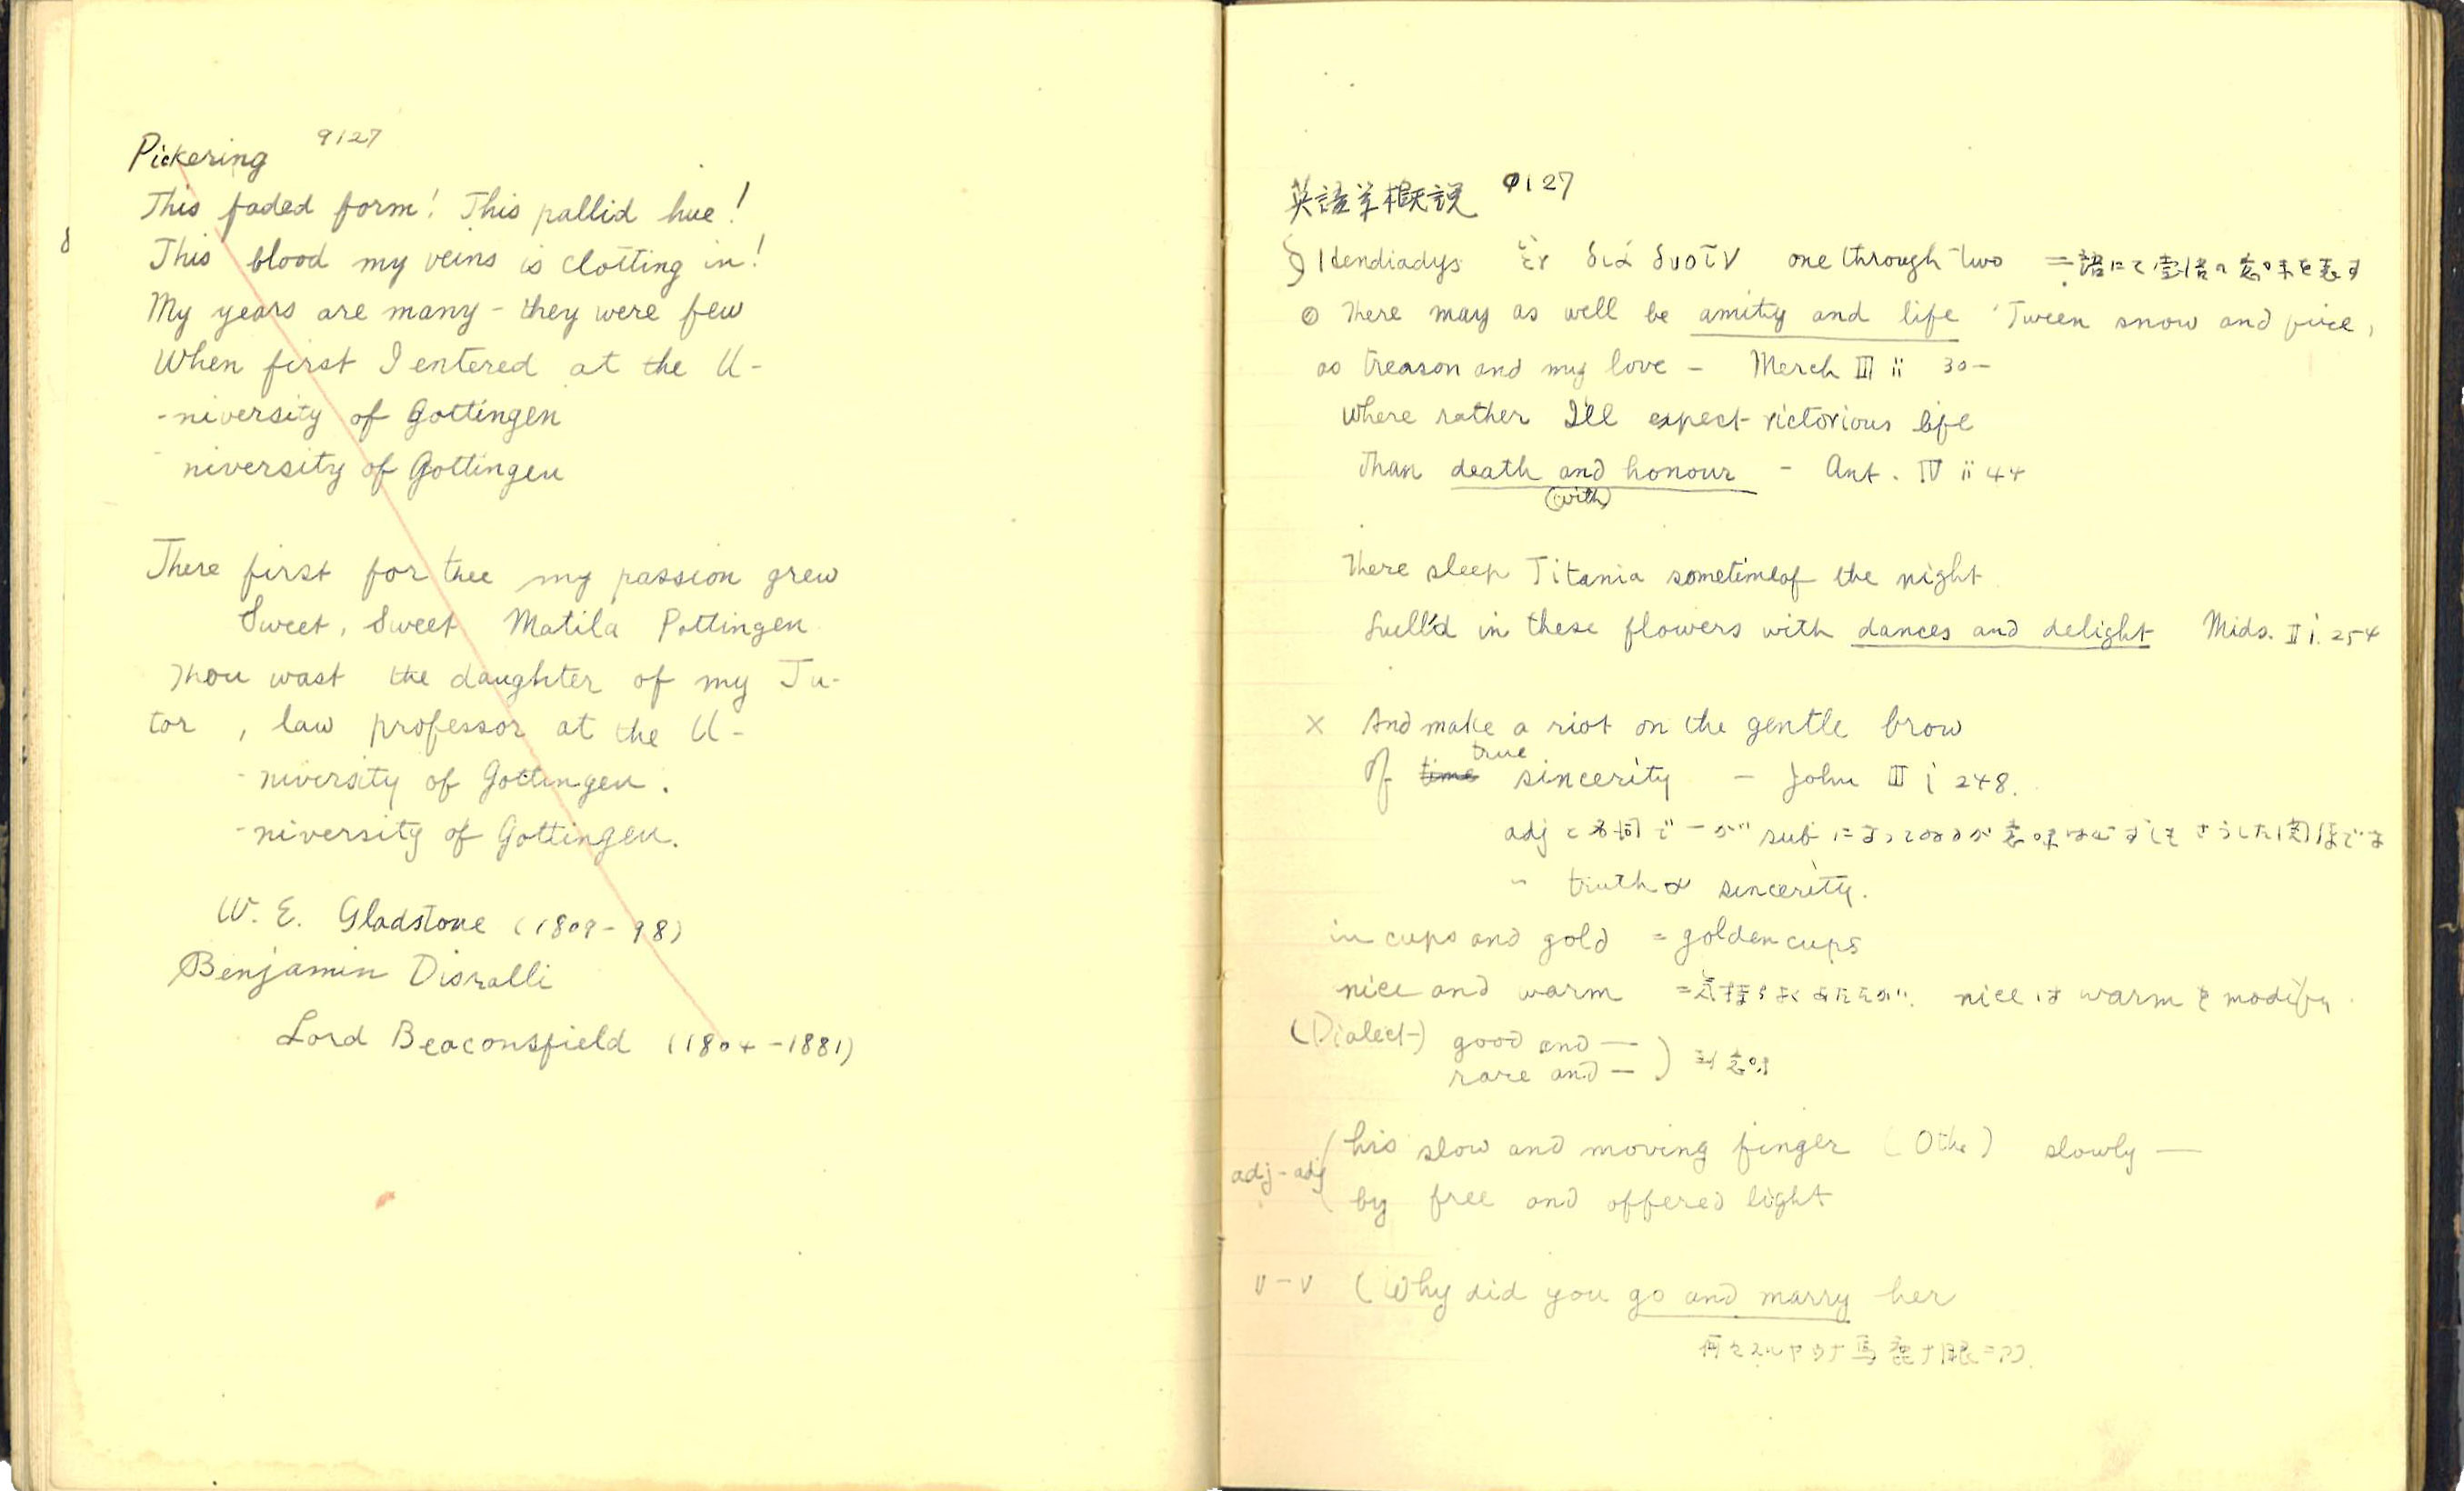 Pickering 9127
This faded form! This pallid hue!
This blood my veins is clotting in!
My years are many - they were few
When first I entered at the U-
-niversity of Gottingen
niversity of Gottingen
There first for thee my passion grew
Sweet, Sweet Matila Pottingen
Thou wast the daughter of my Tu-
tor, law professor at the U-
-niversity of Gottingen.
-niversity of Gottingen.
W. E. Gladstone (1809-98)
Benjamin Disralli
Lord Beaconsfield (1804-1881)
英語学概説 9127
§ Hendiadys ἓν διὰ δυοῖν one through two 二語にて壱語の意味を表す
◎ There may as well be amity and life 'Tween snow and fire,
as treason and my love - Merch III ii 30-
Where rather I'll expect victorious life
Than death and honour - Ant. IV ii 44
(with)
There sleep Titania sometime of the night
Lull'd in these flowers with dances and delight Mids. II i. 254
× And make a riot on the gentle brow
Of time true sincerity - John III i 248.
adj と名詞で一が sub になってゐるが意味は必ずしもさうした関係では
" truth & sincerity.
in cups and gold = golden cups
nice and warm = 気持ちよくあたたかい. nice は warm を modify
(Dialect) good and —
rare and — )
his slow and moving finger (Othe) slowly —
adj-adj
by free and offered light
v-v (Why did you go and marry her